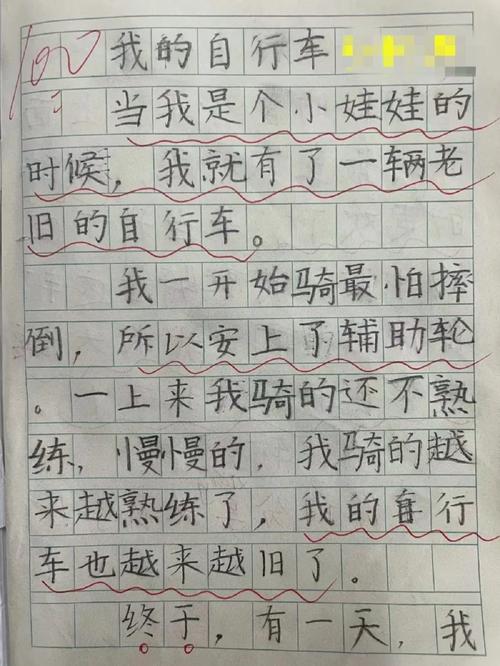 100
我的自行车
当我是个小娃娃的
时候，我就有了一辆老
旧的自行车。
我一开始骑最怕摔
倒，所以安上了辅助轮
。一上来我骑的还不熟
练，慢慢的，我骑的越
来越熟练了，我的自行
车也越来越旧了。
终于，有一天，我